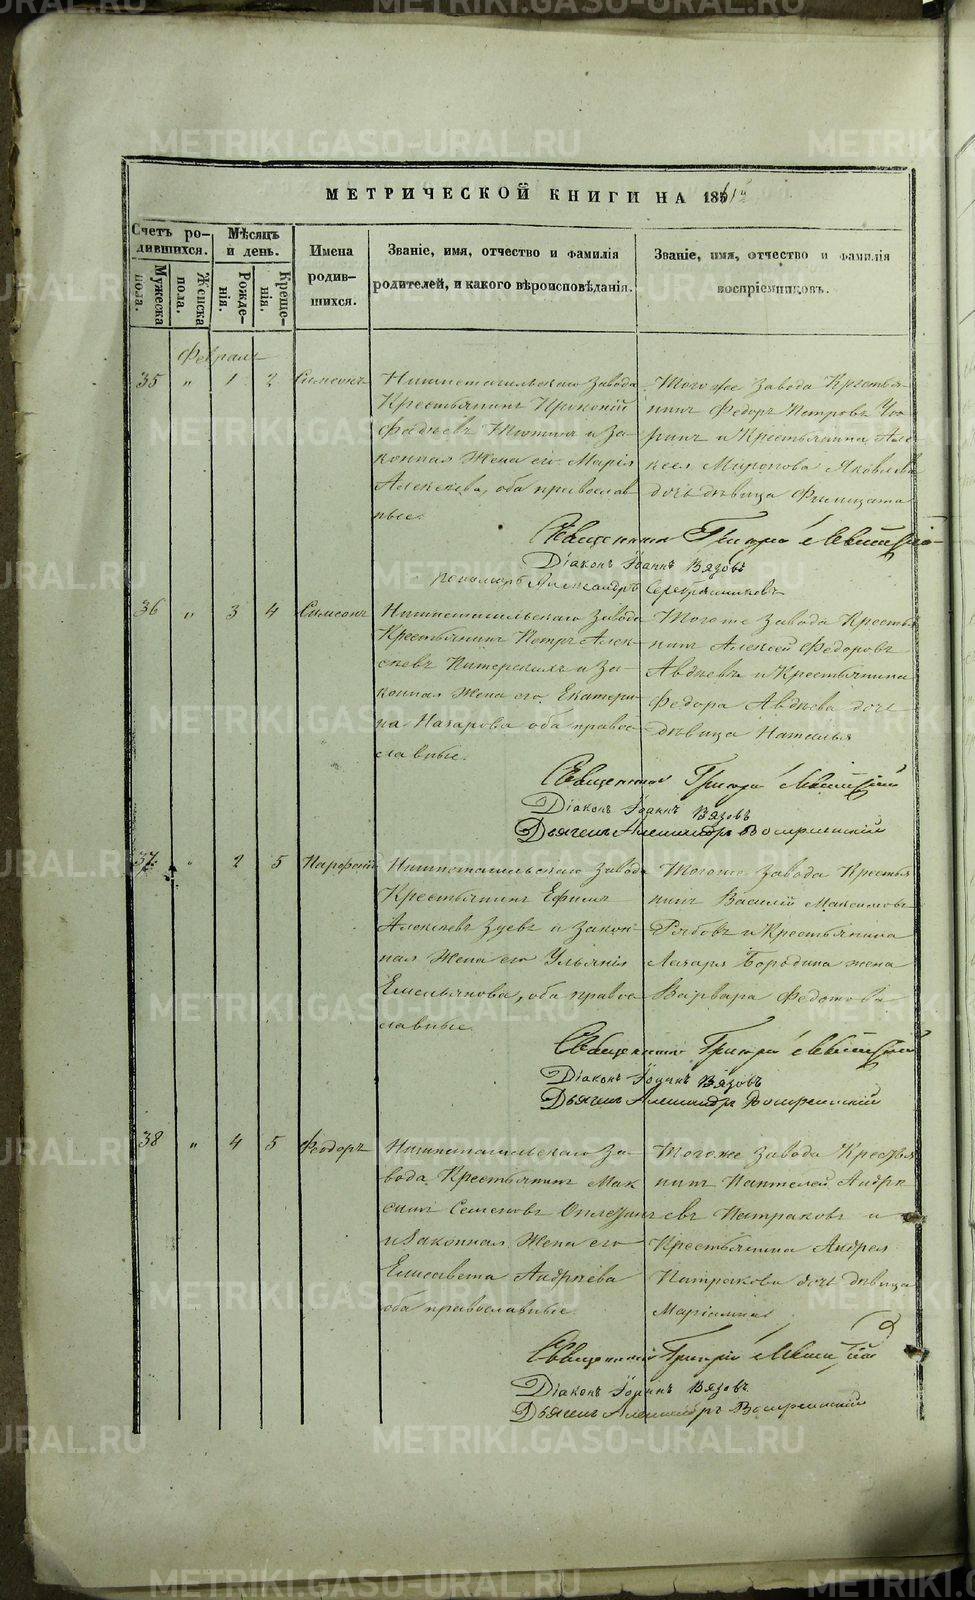 METRIKI.GASO-URAL.RU
МЕТРИЧЕСКОЙ КНИГИ НА 18
Счетъ родившихся.
Мѣсяцъ и день.
Имена родившихся.
Званіе, имя, отчество и фамилія родителей, и какого вѣроисповѣданія.
Званіе, имя, отчество и фамилія воспріемниковъ.
Мужеска пола.
Женска пола.
Рожденія.
Крещенія.
Февраль
35 " 1 2 Симеонъ
Нижнетагильскаго Завода
Крестьянинъ Прокопій
и За-
конная Жена его Марія
Алексѣева, оба православ-
ные.
Тогоже Завода Крестья-
нинъ Федоръ Петровъ
и Крестьянина Але-
ксея Миронова Яковлева
дочь дѣвица
Священникъ Григорій Левитскій
Діаконъ Іоаннъ Вязовъ
Александръ Серебрянниковъ
36 " 3 4 Симеонъ
Нижнетагильскаго Завода
Крестьянинъ Петръ Алек-
сѣевъ и За-
конная Жена его Екатери-
на Назарова оба правос-
лавные.
Тогоже Завода Крестья-
нинъ Алексей Федоровъ
Авдѣевъ и Крестьянина
Федора Авдѣева дочь
дѣвица Наталья
Священникъ Григорій Левитскій
Діаконъ Іоаннъ Вязовъ
Дьячекъ Александръ
37 " 2 5 Парфеній
Нижнетагильскаго Завода
Крестьянинъ Ефимъ
Алексѣевъ Зуевъ и Закон-
ная Жена его Ульянія
Емельянова, оба правос-
лавные.
Тогоже Завода Крестья
нинъ Василій Максимовъ
Рябовъ и Крестьянина
Лазаря Бородина жена
Варвара Федотова
Священникъ Григорій Левитскій
Діаконъ Іоаннъ Вязовъ
Дьячекъ Александръ
38 " 4 5 Феодоръ
Нижнетагильскаго За-
вода Крестьянинъ Мак
симъ Семеновъ
и Законная Жена его
Елисавета Андрѣева
оба православные.
Тогоже Завода Крестья
нинъ Пантелей Андрѣ
евъ Патраковъ и
Крестьянина Андрея
Патракова дочь дѣвица
Маріамна
Священникъ Григорій Левитскій
Діаконъ Іоаннъ Вязовъ
Дьячекъ Александръ